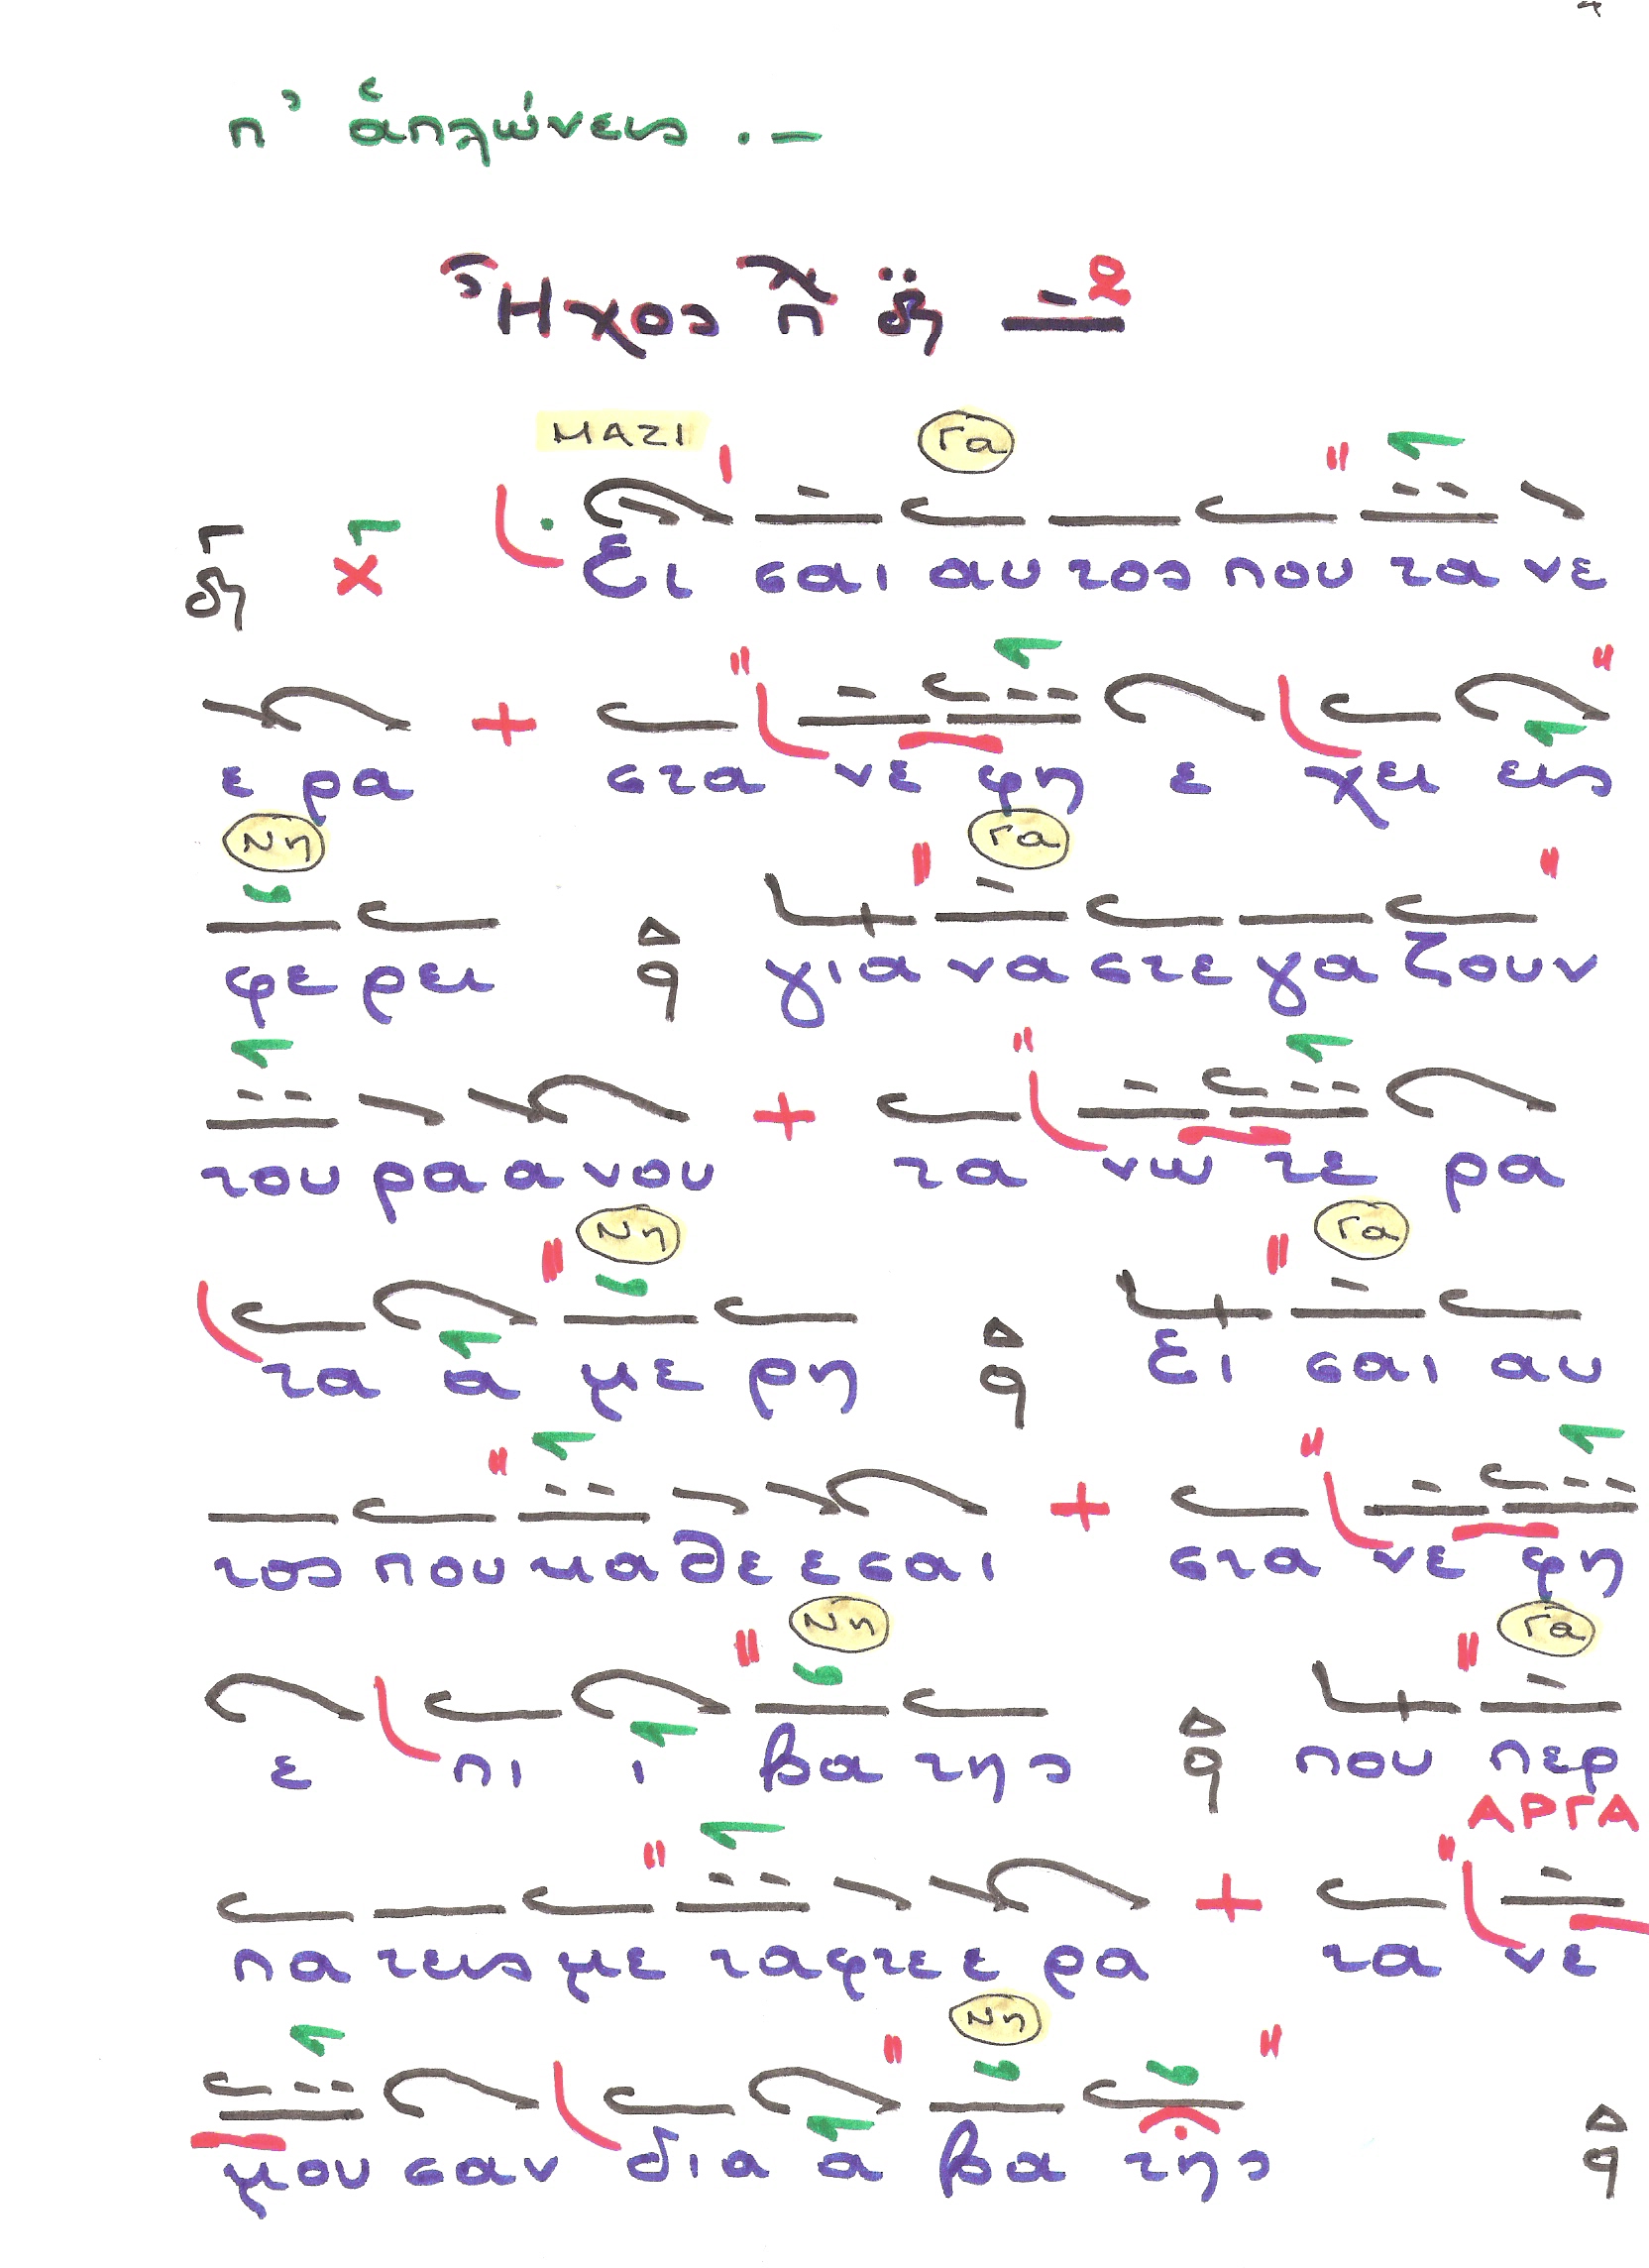 π' ἁπλώνεις .-
Ἦχος π δι
ΜΑΖΙ Γα
δι χ Ει σαι αυ τος που τα νε
ε ρα + στα νε φη ε χει εις
Νη Γα
φε ρει q για να στε γα ζουν
του ρα α νου + τα νω τε ρα
Νη Γα
τα α με ρη q Ει σαι αυ
τος που κα θε ε σαι + στα νε φη
Νη Γα
ε πι ι βα της q που περ
ΑΡΓΑ
πα τεις με τα φτε ε ρα + τα νε
Νη
μου σαν δια α βα της q